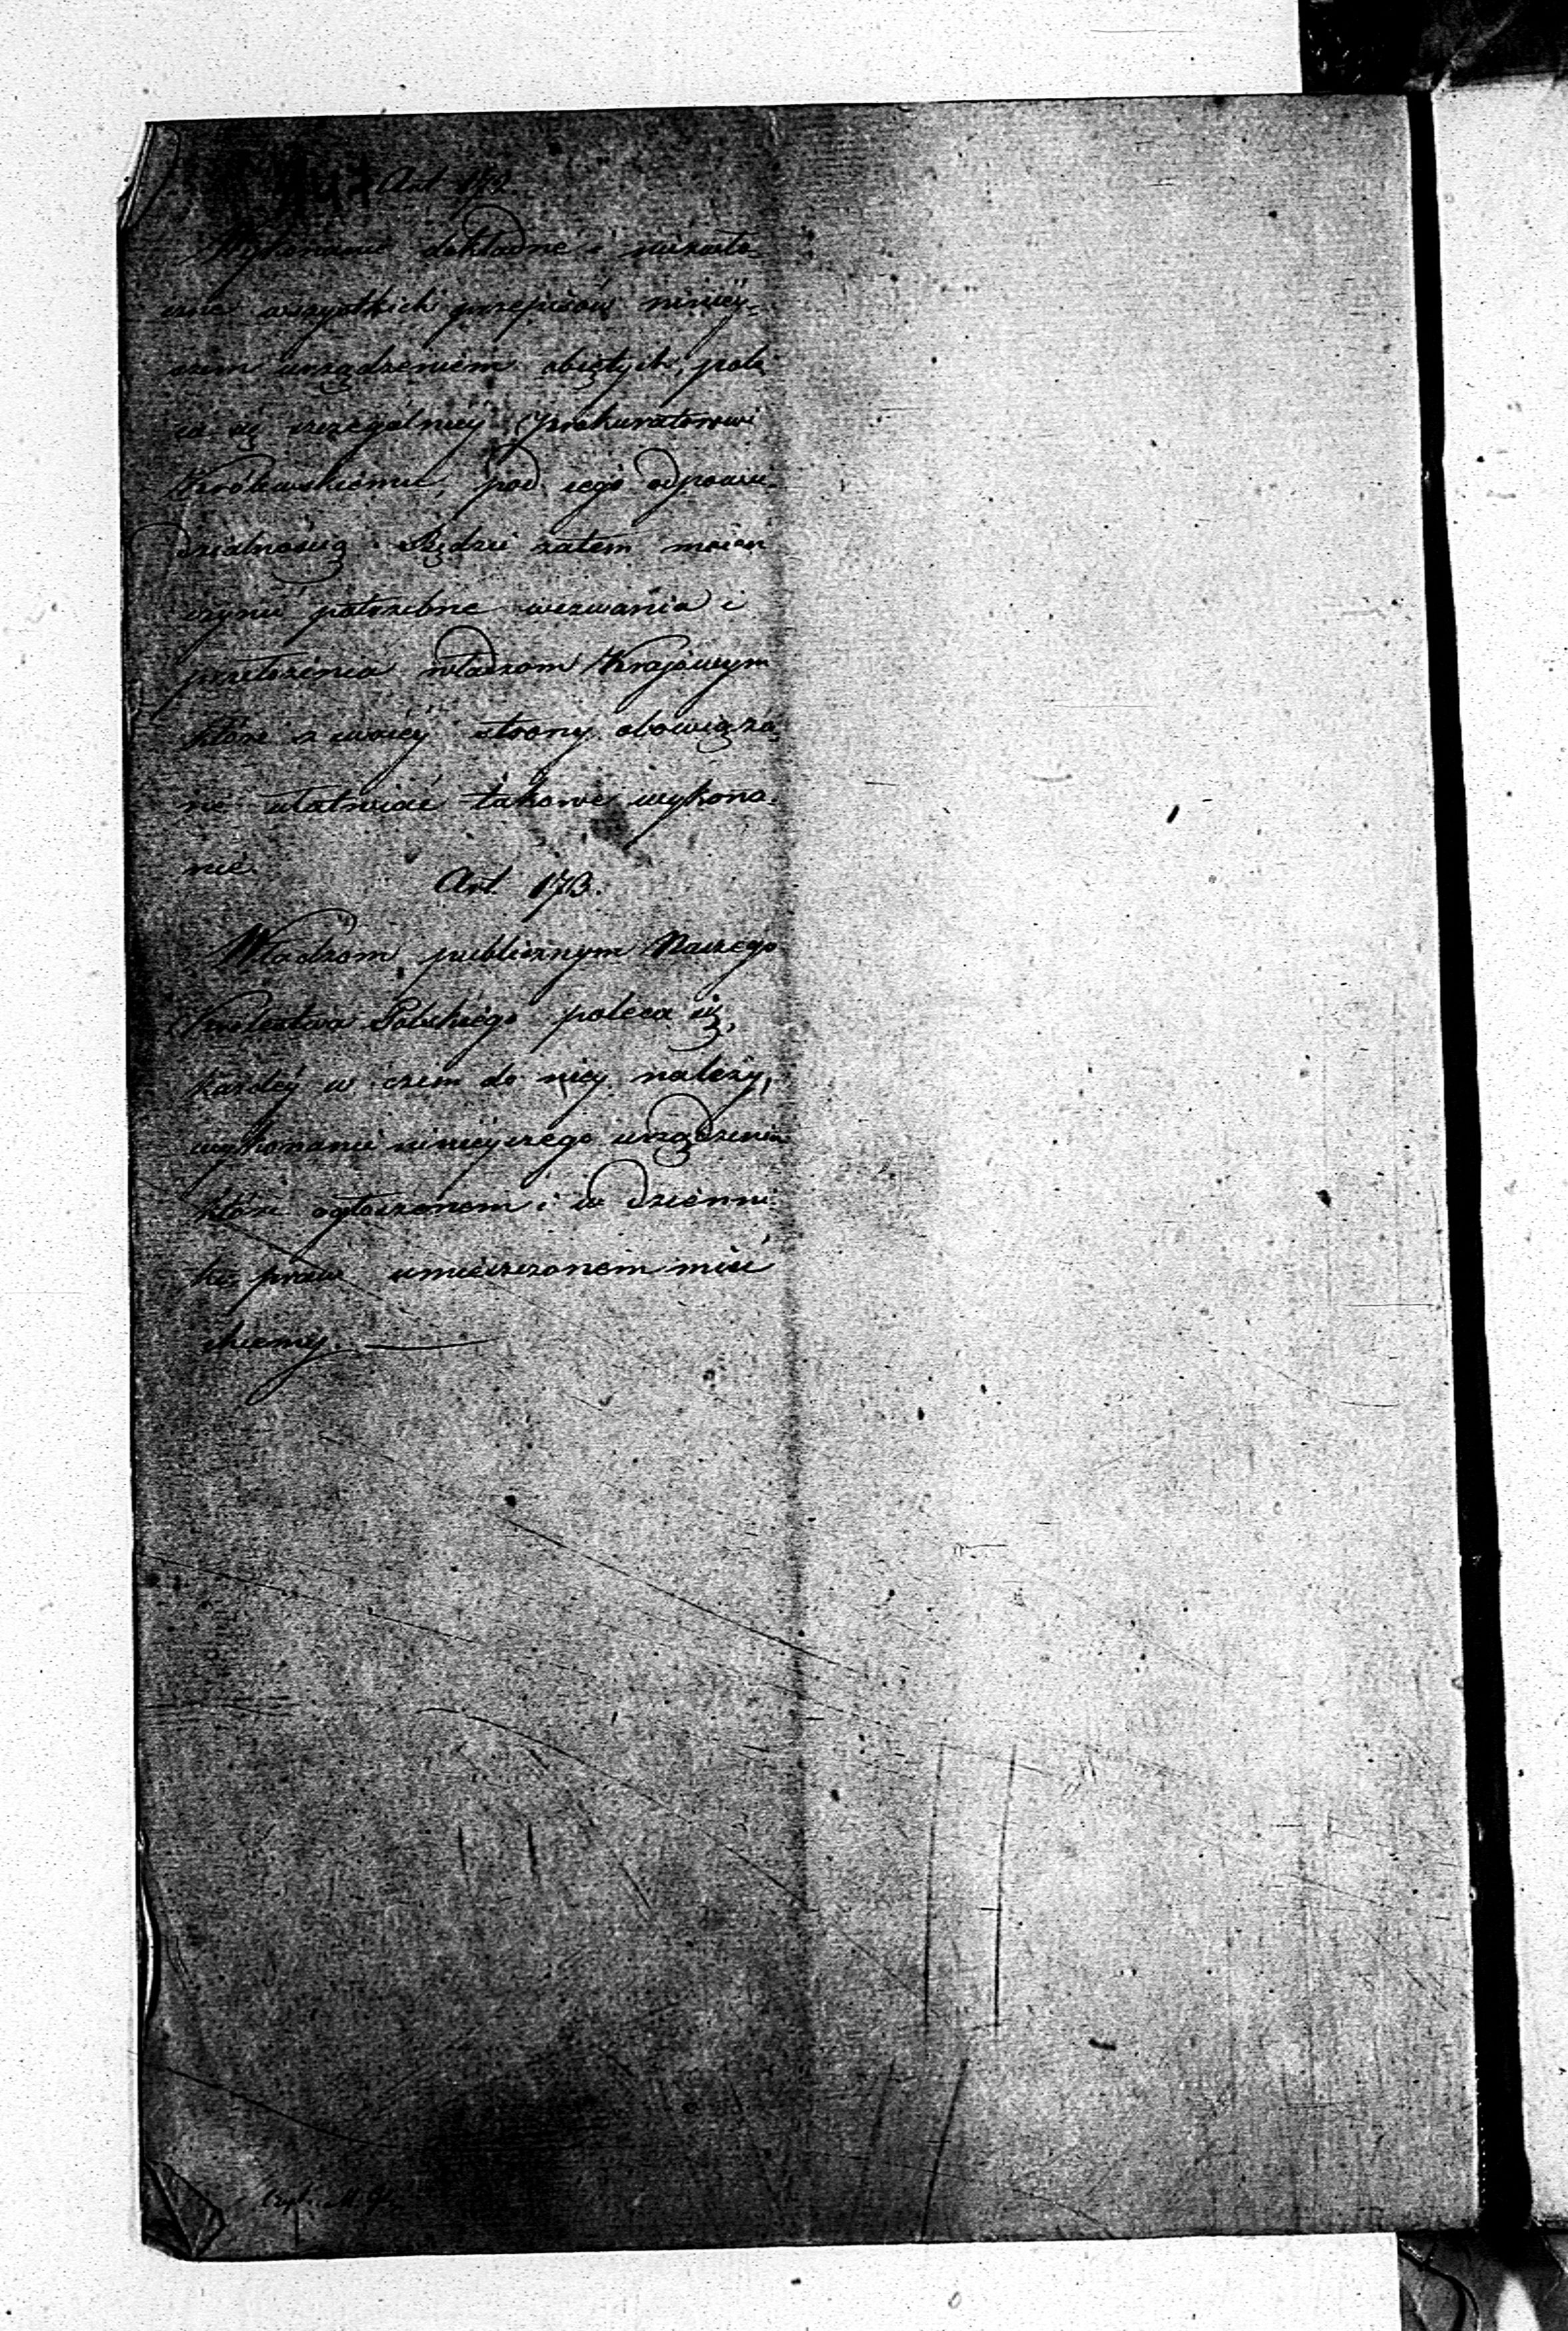 Art. 172.
Wykonanie dokładne i niezwło-
czne wszystkich przepisów niniéy-
szem urządzeniem obiętych, pole-
ca się szczególniéy Prokuratorowi
Królewskiému, pod iego odpowie-
dzialnością. Będzie zatem mógł
czynić potrzebne wezwania i
przełożenia władzom Krajowym
które z swoiéy strony obowiąza-
ne ułatwiać takowe wykona-
nie.
Art. 173.
Władzom publicznym Naszego
Królestwa Polskiégo poleca się,
każdéy w czem do niéy należy,
wykonanie ninieyszego urządzenia
które ogłoszonem i w Dzienni-
ku praw umieszczonem mieć
chcemy.